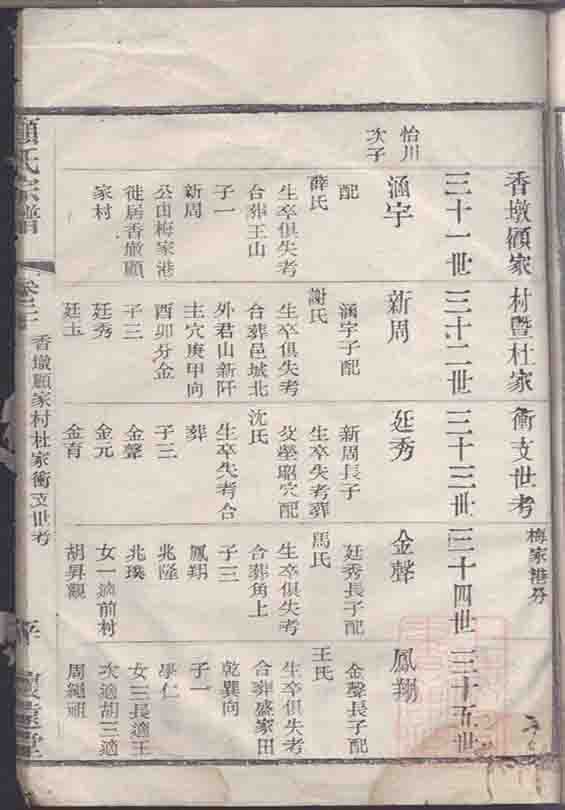 香墩顧家村暨杜家衝支世考
梅家港分
三十一世
三十二世
三十三世
三十四世
三十五世
怡川
次子
涵宇
配
薛氏
生卒俱失考
合葬王山
子一
新周
公由梅家港
徙居香墩顧
家村
新周
涵宇子配
謝氏
生卒俱失考
合葬邑城北
外君山新阡
主穴庚甲向
酉卯分金
子三
廷秀
廷玉
延秀
新周長子
生卒失考葬
父塋昭穴配
沈氏
生卒失考合
葬
子三
金聲
金元
金育
金聲
廷秀長子配
馬氏
生卒俱失考
合葬角上
子三
鳳翔
兆隆
兆璞
女一適前村
胡昇觀
鳳翔
金聲長子配
王氏
生卒俱失考
合葬盛家田
乾巽向
子一
學仁
女三長適王
次適胡三適
周繩祖
顧氏宗譜
卷二
香墩顧家村杜家衝支世考